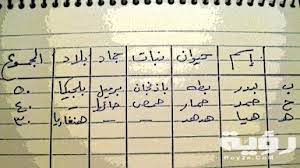 إسم حيوان نبات جماد بلاد المجموع
ب بدر بطه باذنجان برميل بلجيكا ٥٠
ح حمد حمار حمص حائط - ٤٠
ه هيا هدهد - - هنغاريا ٣٠
رؤية